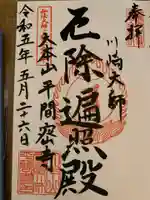 奉拝
川崎大師
厄除遍照殿
大本山平間寺
令和五年五月二十六日